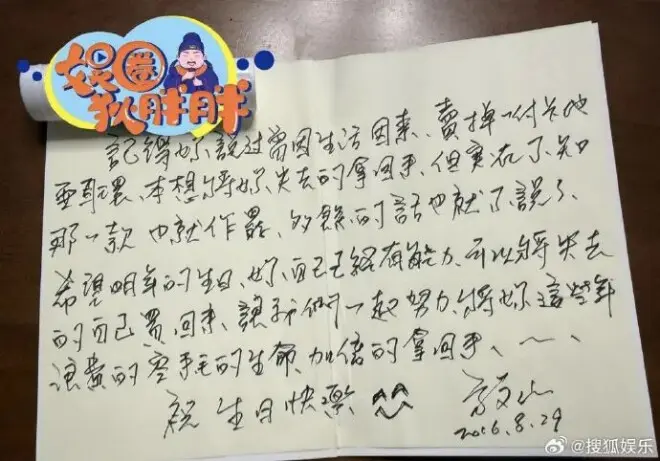 娱圈
狐胖胖
記得妳說过曾因生活因素、賣掉一付卡地
亞耳環、本想將妳失去的拿回来、但实在不知
那一款也就作罷、多餘的話也就不說了、
希望明年的生日、妳自己已経有能力、可以將失去
的自己買回来、讓我們一起努力、將妳這些年
浪費的、寶貴的生命、加倍的拿回来、
祝生日快樂 ^^
2016.8.29
@搜狐娱乐